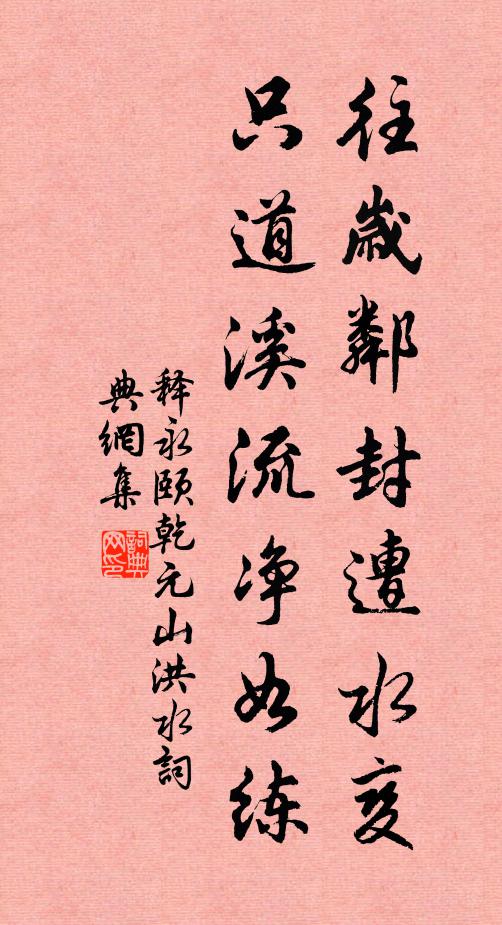 往歲鄰封遭水変
只道溪流净如练
释永頤乾元山洪水詞
典網集
詞典
网印